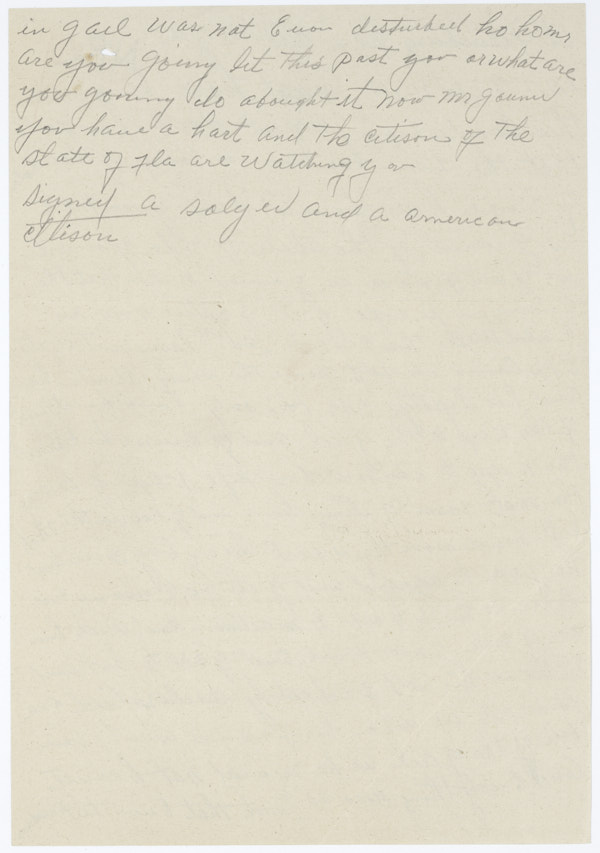 in gail was not Even desturbed ho hom
are you going let this past you or what are
you gowny do abought it now Mr
you have a hart and the citison of The
state of Fla are Watching you
signed a solyer and a american
citison